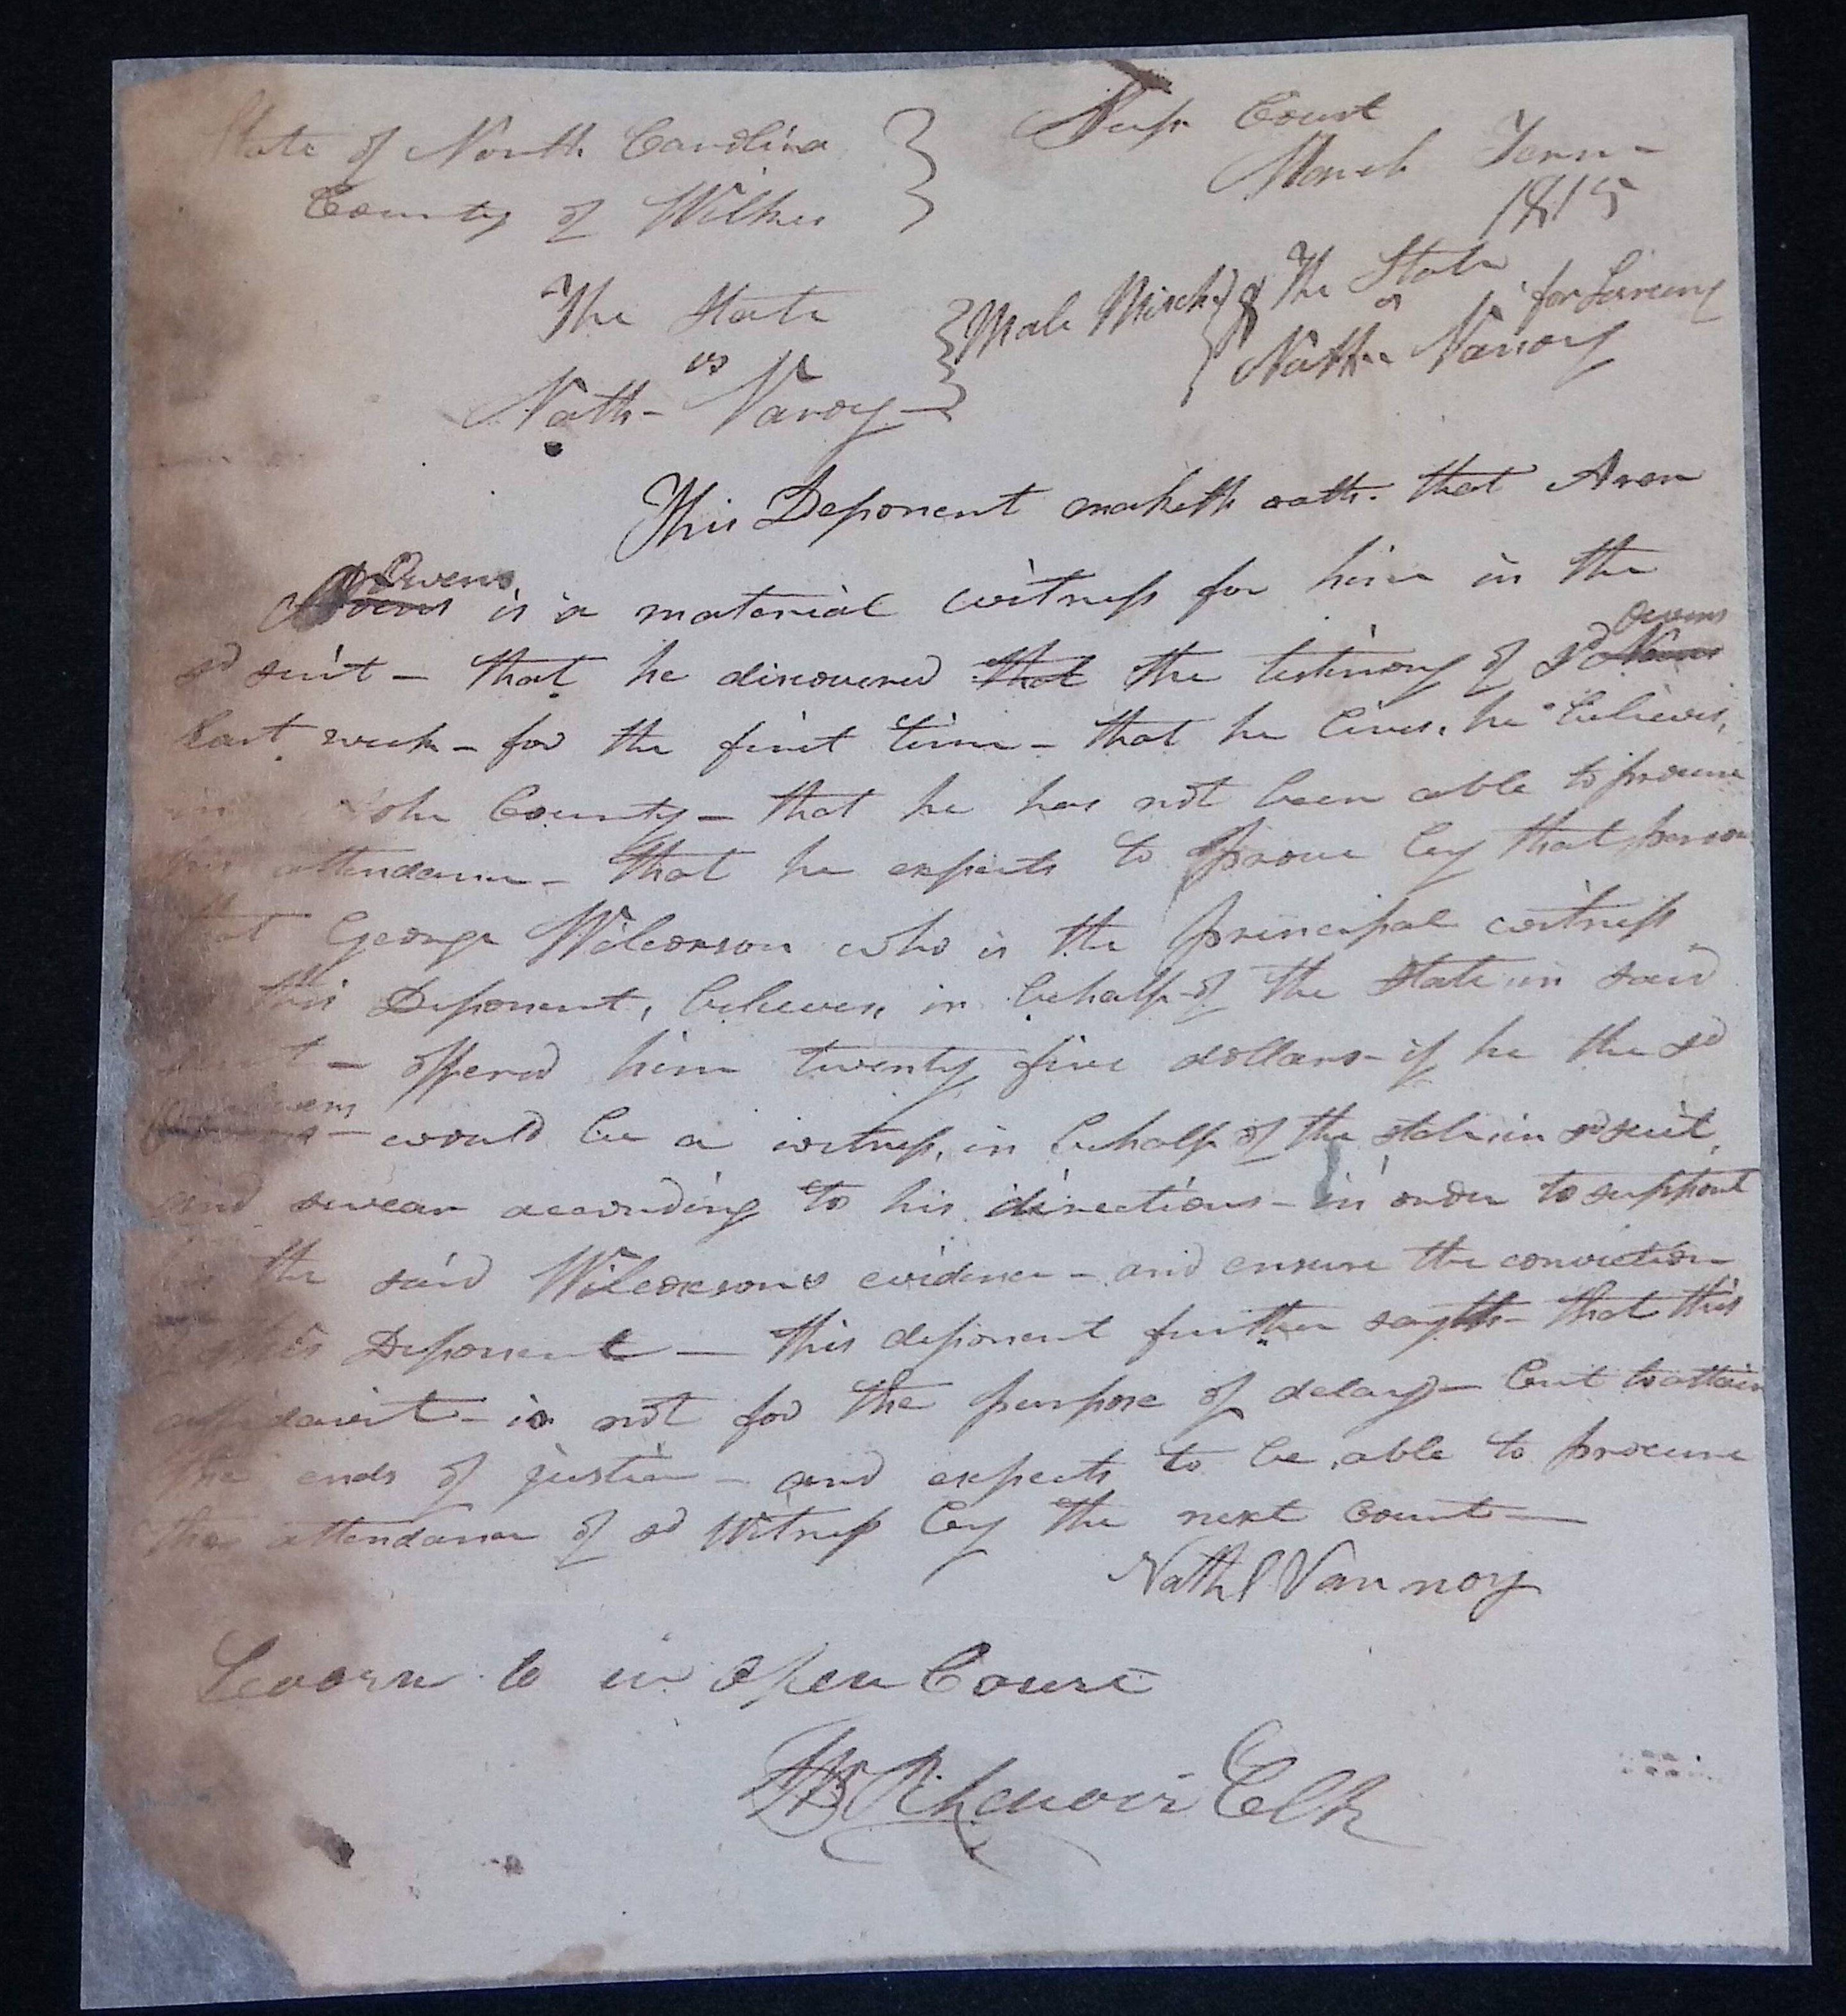 State of North Carolina } Sup Court
County of Wilkes } March Term
1815
The State } Mali Misch & { The State
vs } vs for Larceny
Nath- Vanoy } Nath- Vanoy
This Deponent maketh oath that Aron
Owens is a material witness for him in the
sd suit - that he discovered that the testimony of sd Owens
last week - for the first time - that he lives, he believes,
in County - that he has not been able to procure
his attendance - that he expects to prove by that person
that George Wilcoxson who is the principal witness
this Deponent, believes, in behalf of the State in said
suit - offered him twenty five dollars - if he the sd
Owens - would be a witness, in behalf of the state in sd suit,
and swear according to his directions - in order to support
the said Wilcoxson's evidence - and ensure the conviction
this Deponent - this deponent further sayth - that this
affidavit - is not for the purpose of delay - but to attain
the ends of justice - and expects to be able to procure
the attendance of sd Witness by the next Court -
Nathl Vannoy
Sworn to in open Court
Clk